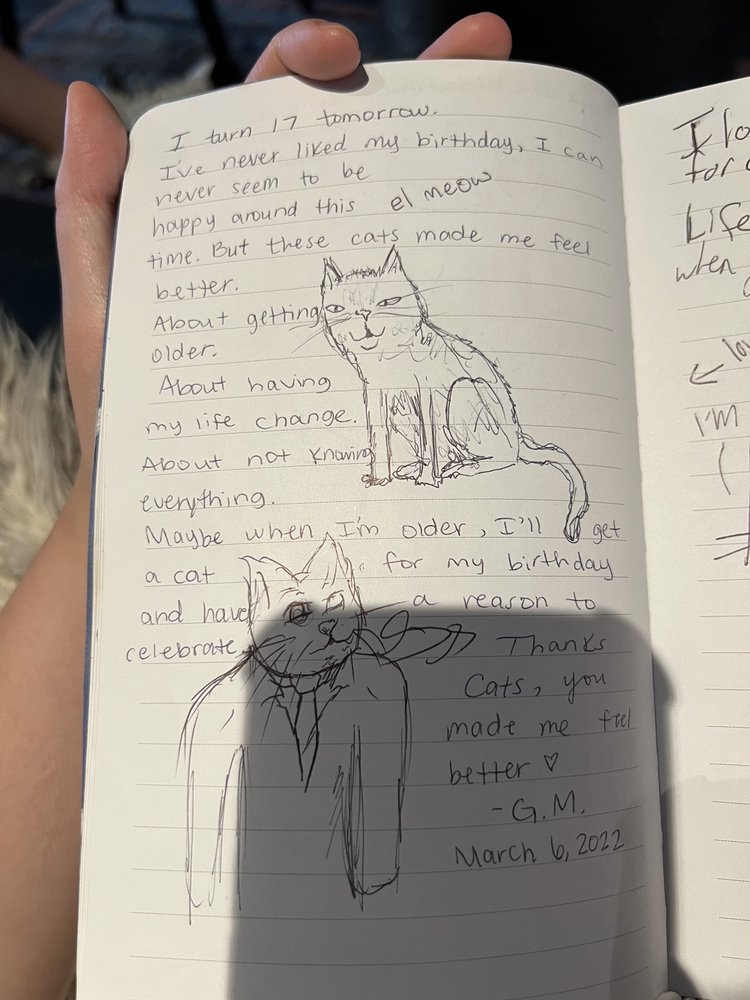 I turn 17 tomorrow.
I've never liked my birthday, I can
never seem to be
happy around this el meow
time. But these cats made me feel
better.
About getting
older.
About having
my life change.
About not knowing
everything.
Maybe when I'm older, I'll get
a cat for my birthday
and have a reason to
celebrate.
Thanks
Cats, you
made me feel
better ♡
-G.M.
March 6, 2022
for
Life
when
←
I'M